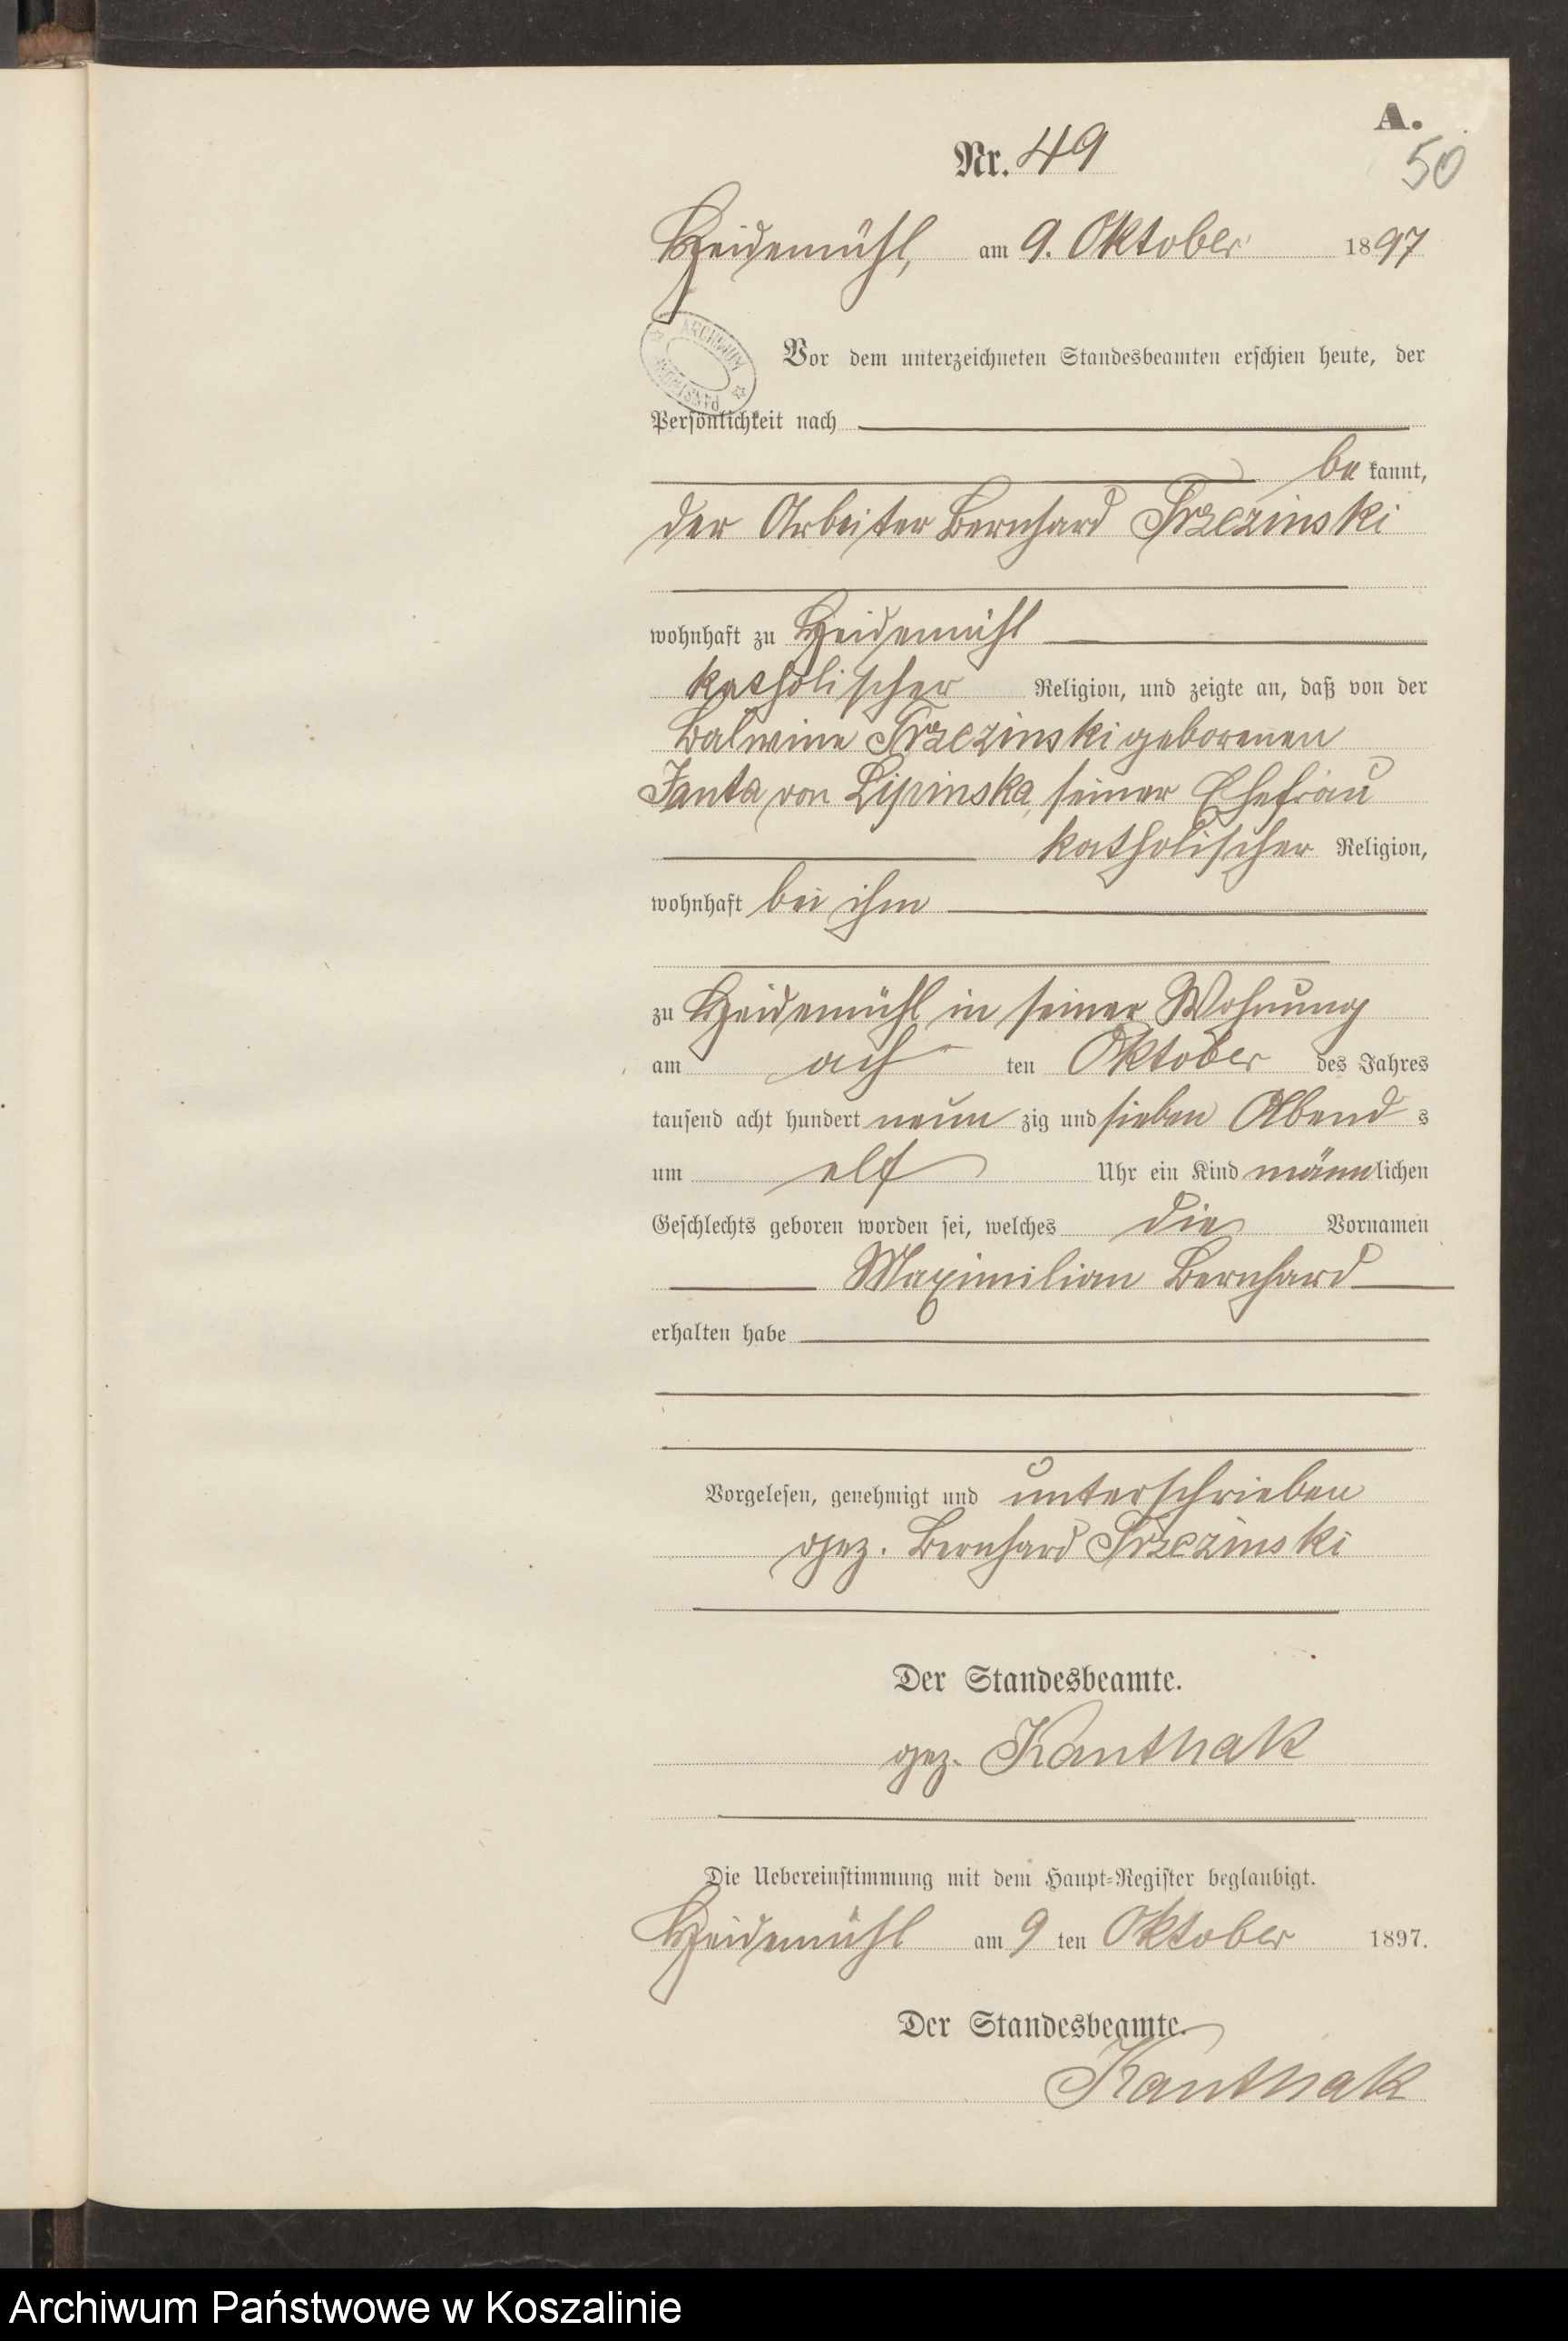 A.
Nr. 49
50
Heidemühl, am 9. Oktober 1897
ARCHIWUM PAŃSTWOWE
Vor dem unterzeichneten Standesbeamten erschien heute, der
Persönlichkeit nach
be kannt,
der Arbeiter Bernhard Trzezinski
wohnhaft zu Heidemühl
katholischer Religion, und zeigte an, daß von der
Balwine Trzezinski geborenen
Janta von Lipinska, seiner Ehefrau
katholischer Religion,
wohnhaft bei ihm
zu Heidemühl in seiner Wohnung
am ach ten Oktober des Jahres
tausend acht hundert neun zig und sieben Abend s
um elf Uhr ein Kind männlichen
Geschlechts geboren worden sei, welches die Vornamen
Maximilian Bernhard
erhalten habe
Vorgelesen, genehmigt und unterschrieben
gez. Bernhard Trzezinski
Der Standesbeamte.
gez. Kanthak
Die Uebereinstimmung mit dem Haupt-Register beglaubigt.
Heidemühl am 9 ten Oktober 1897.
Der Standesbeamte.
Kanthak
Archiwum Państwowe w Koszalinie